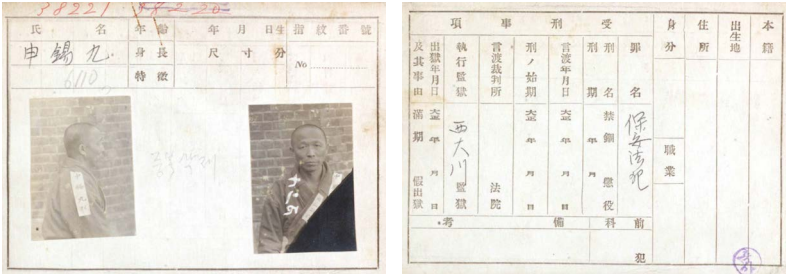 38221
氏名
年齡
年月日生
指紋番號
申錫九
身長
尺寸分
No
特徵
중복 삭제
本籍
出生地
住所
身分
職業
受刑事項
罪名 保安法犯
刑名 禁錮 懲役
刑期 年 月
言渡年月日 大正 年 月 日
刑ノ始期 大正 年 月 日
言渡裁判所 法院
執行監獄 西大門 監獄
出獄年月日 大正 年 月 日
及其事由 滿期 假出獄
前科 犯
備考